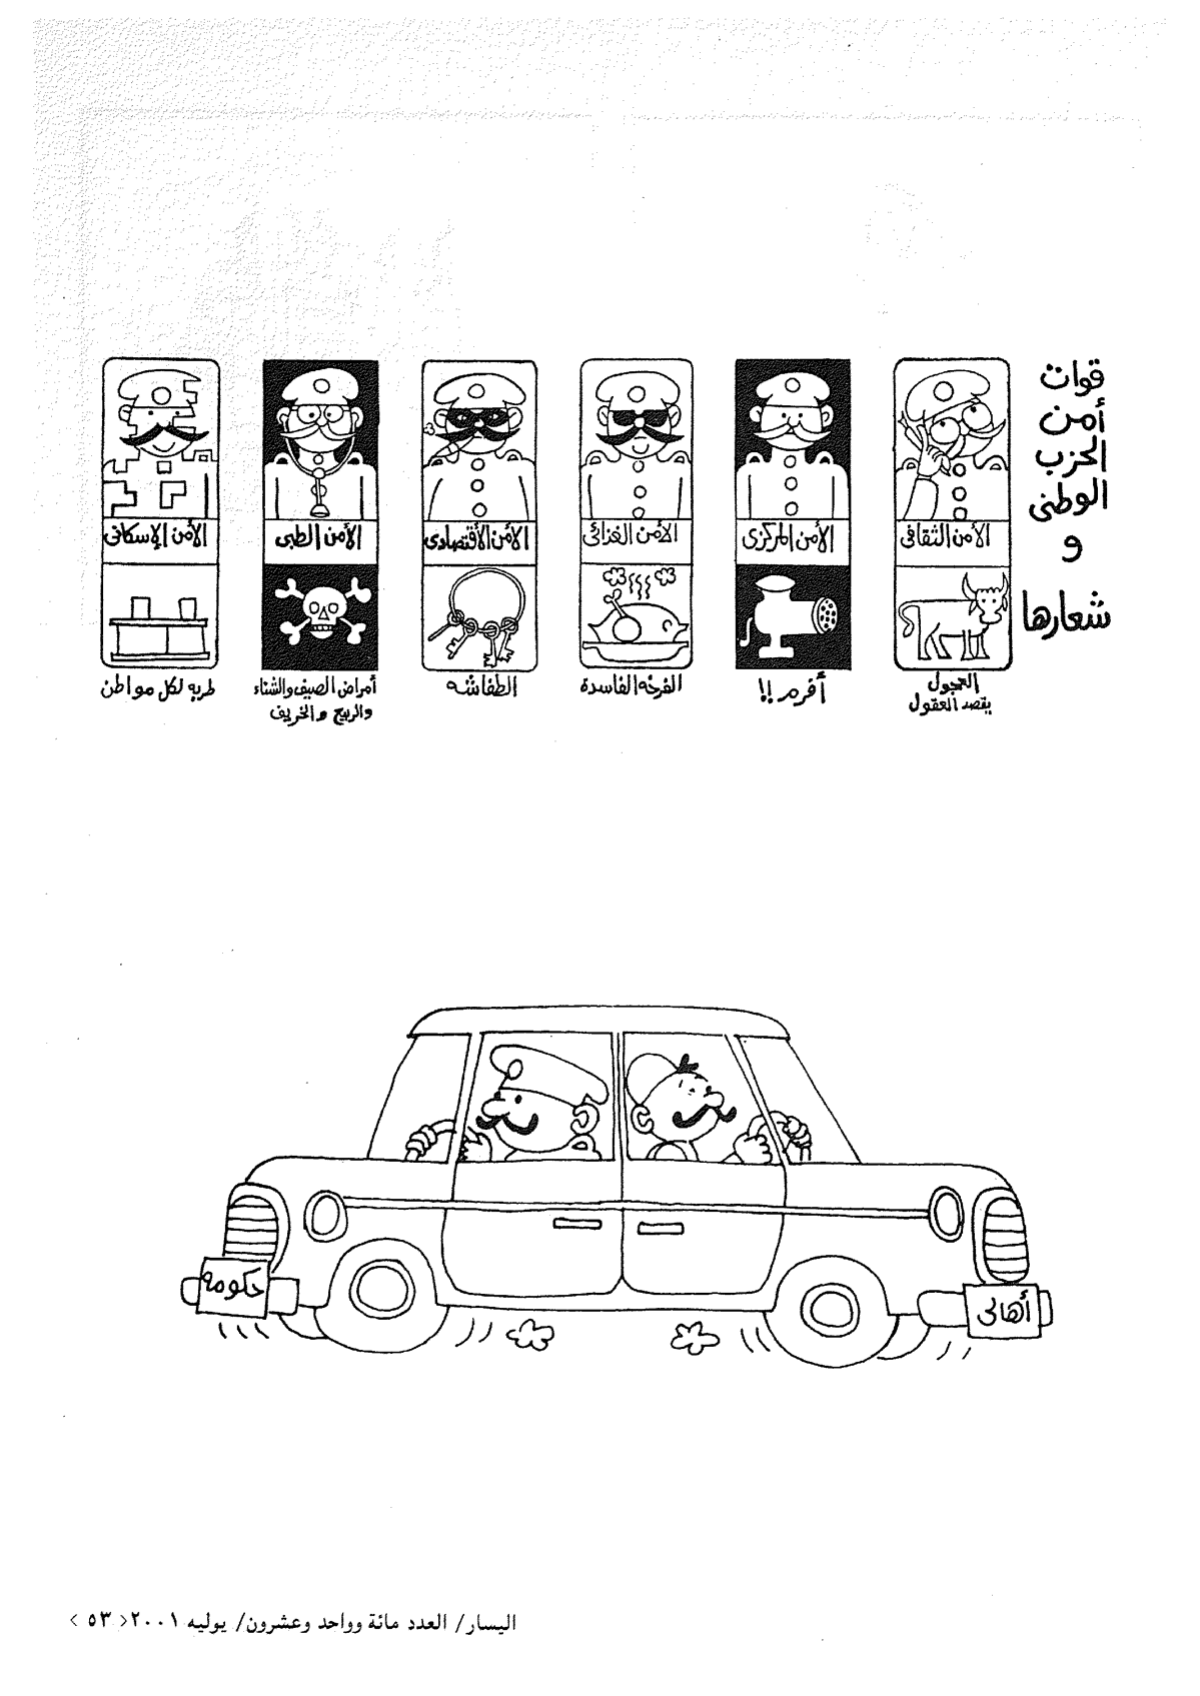 قوات
أمن
الحزب
الوطنى
و
شعارها
الأمن الثقافى
العجول
يقصد العقول
الأمن المركزى
أفرم !!
الأمن الغذائى
الفرخه الفاسدة
الأمن الأقتصادى
الطفاشه
الأمن الطبى
أمراض الصيف والشتاء
والربيع والخريف
الأمن الإسكانى
طربه لكل مواطن
حكومه
أهالى
اليسار/ العدد مائة وواحد وعشرون/ يوليه ٢٠٠١< ٥٣ >